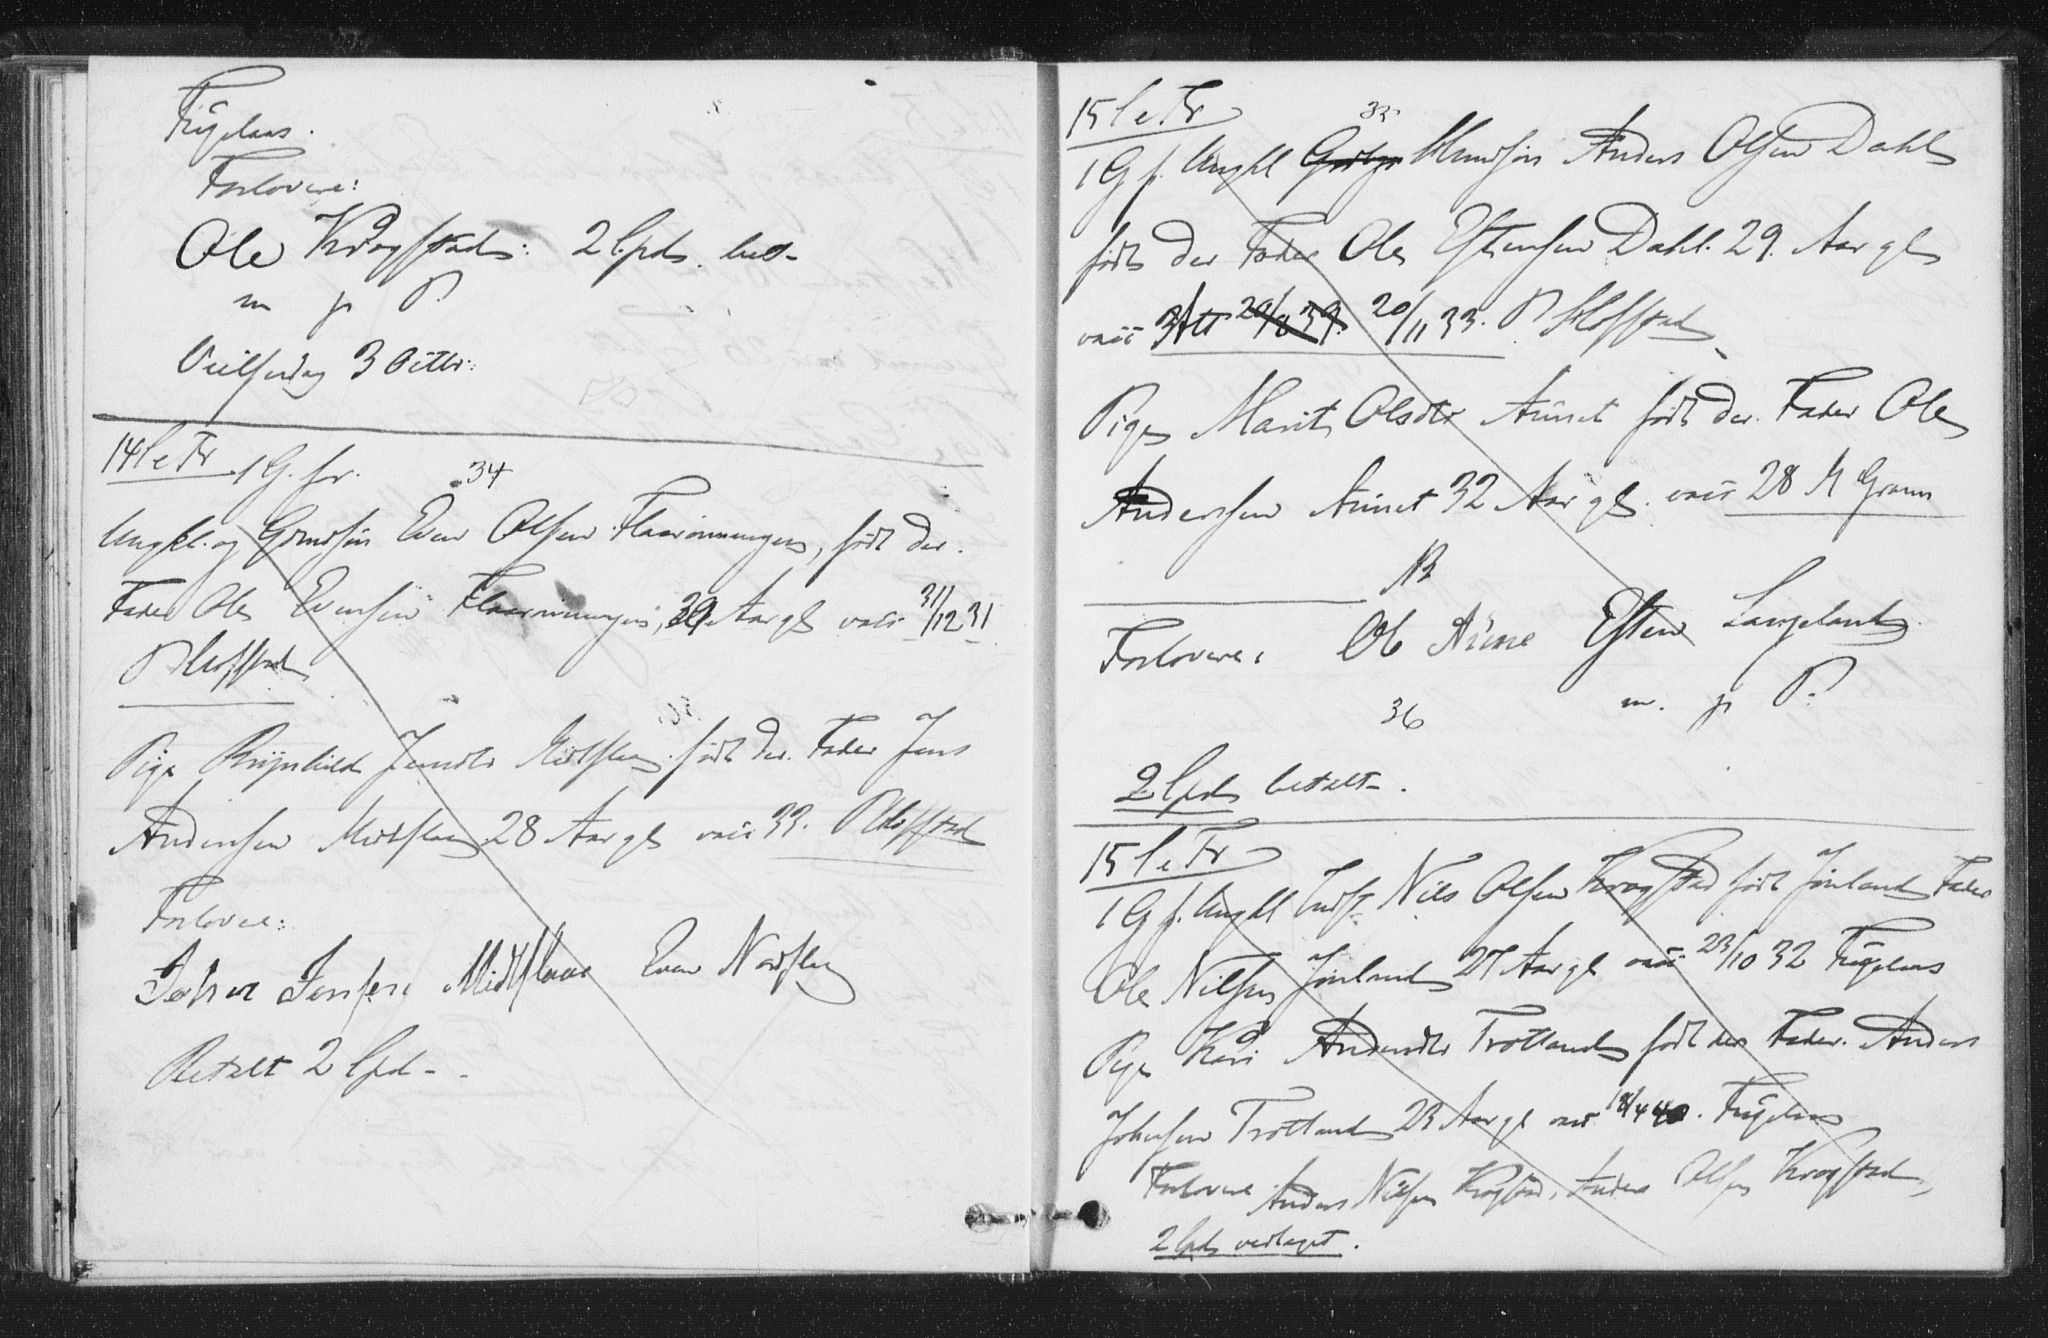 Fugelaas.
Forlovere:
Ole Krogstad: 2 Spd. bet-
m p P.
Vielsesdag 3 Octbr:
14 S e Tr 1 G. fr.
34
Ungkl. og Gmdsøn Even Olsen Flaarønningen, født der.
Fader Ole Evensen Flaarønningen, 29 Aar gl vacc 31/12 31
P Kloffsted
Pige Brynhild Jensdtr Midtflaa født der. Fader Jens
Andersen Midtflaa 28 Aar gl vacc 33. P Kloffsted
Forlovere:
Johan Jensen Midtflaae Even Nordflaa
Betalt 2 Spd-.
15 S e Tr
35
1 G f. Ungkl Gmdsøn Anders Olsen Dahl
født der Fader Ole Estensen Dahl. 29. Aar gl
vacc 20/11 33. P Kloffsted
Pige Marit Olsdtr Aunet født der. Fader Ole
Andersen Aunet 32 Aar gl. vacc 28 M Gram
NB
Forlovere: Ole Aune Esten Langeland
m. p P.
36
2 Spd betalt-.
15 S e Tr
1 G f. Ungkl Inds Nils Olsen Krogstad født Jønland Fader
Ole Nilsen Jønland 27 Aar gl vacc 23/10 32 Fugelaas
Pige Kari Andersdtr Trotland født der Fader. Anders
Johnsen Trotland 23 Aar gl vacc 18/4 40. Fugelaas
Forlovere Anders Nilsen Krogstad, Anders Olsen Krogstad,
2 Spd vedlaget.